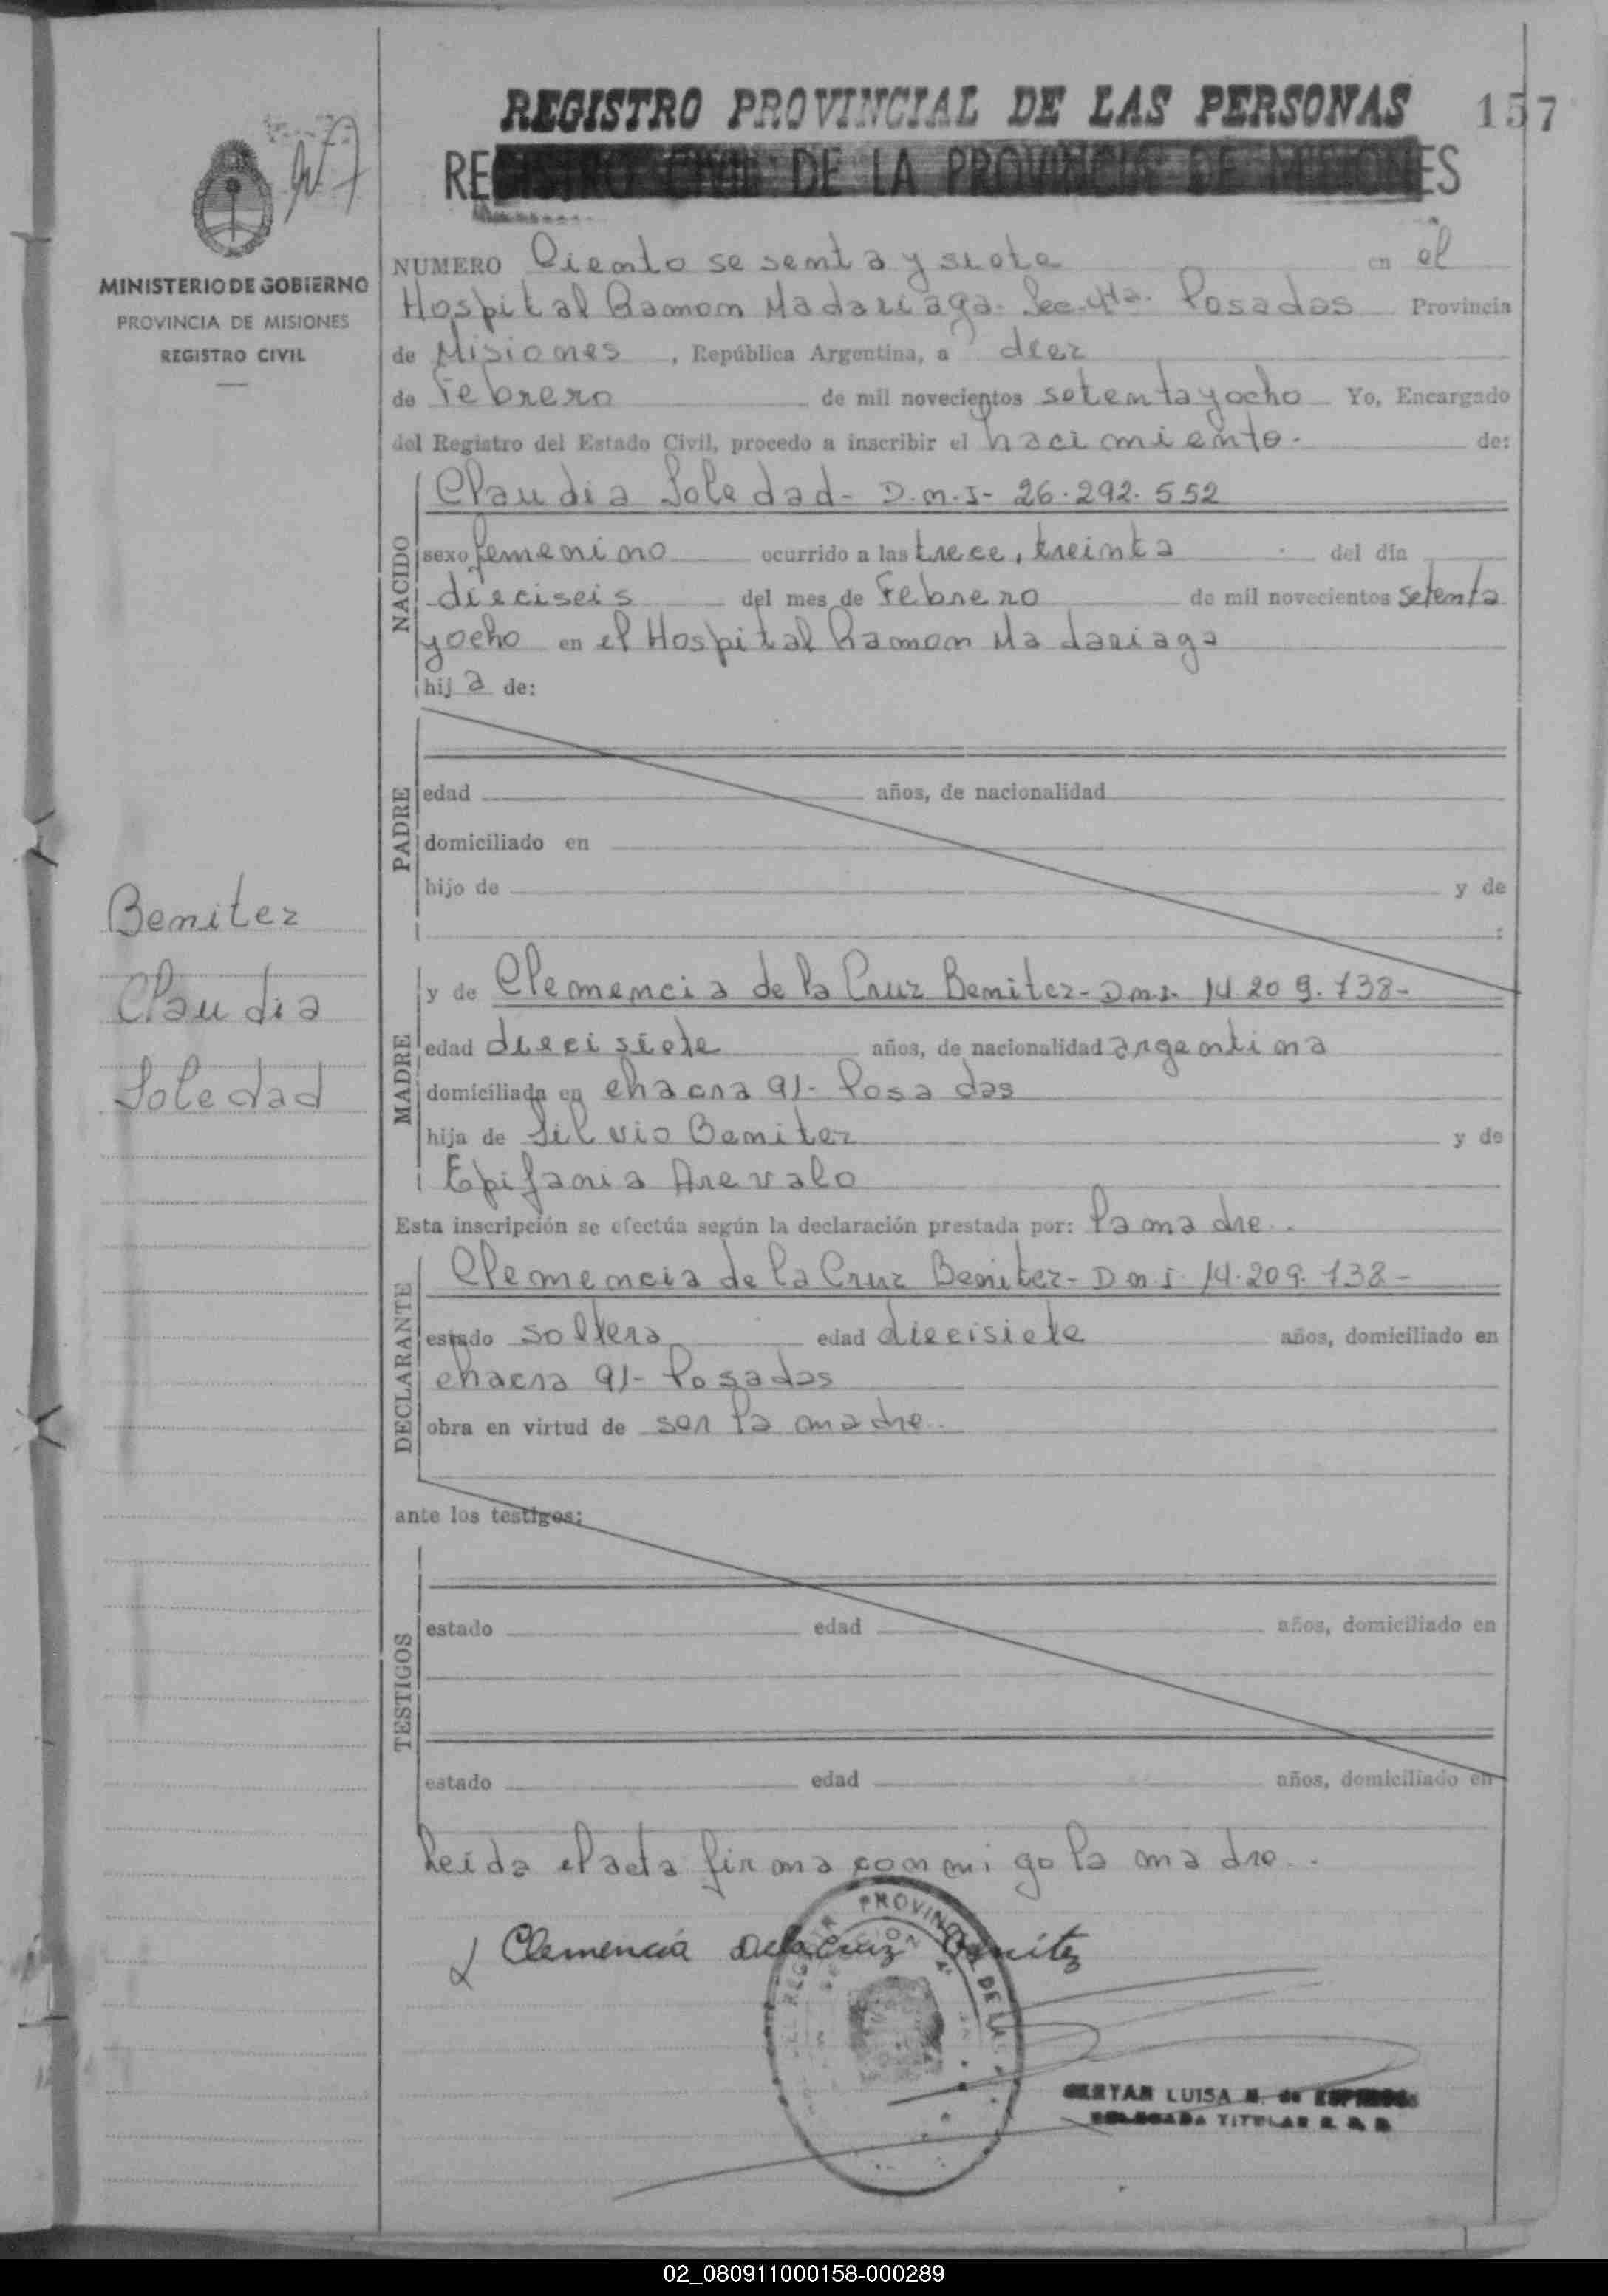 REGISTRO PROVINCIAL DE LAS PERSONAS
157
REGISTRO CIVIL DE LA PROVINCIA DE MISIONES
MINISTERIO DE GOBIERNO
PROVINCIA DE MISIONES
REGISTRO CIVIL
NUMERO Ciento sesenta y siete en el
Hospital Ramon Madariaga. Sec. 4ta. Posadas Provincia
de Misiones, República Argentina, a diez
de Febrero de mil novecientos setenta y ocho Yo, Encargado
del Registro del Estado Civil, procedo a inscribir el nacimiento. de:
NACIDO
Claudia Soledad- D.n.I- 26.292.552
sexo femenino ocurrido a las trece, treinta del día
dieciseis del mes de Febrero de mil novecientos setenta
y ocho en el Hospital Ramon Madariaga
hija de:
PADRE
edad años, de nacionalidad
domiciliado en
hijo de y de
:
Benitez
Claudia
Soledad
MADRE
y de Clemencia de la Cruz Benitez- Dn.I- 14.209.738-
edad diecisiete años, de nacionalidad argentina
domiciliada en chacra 91- Posadas
hija de Silvio Benitez y de
Epifania Arevalo
Esta inscripción se efectúa según la declaración prestada por: la madre..
DECLARANTE
Clemencia de la Cruz Benitez- Dn I. 14.209.738-
estado soltera edad diecisiete años, domiciliado en
chacra 91- Posadas
obra en virtud de ser la madre..
ante los testigos:
TESTIGOS
estado edad años, domiciliado en
estado edad años, domiciliado en
Leida el acta firma conmigo la madre..
Clemencia Delacruz Benítez
PROVINCIAL DE LA
LUISA
TITULAR
02_080911000158-000289